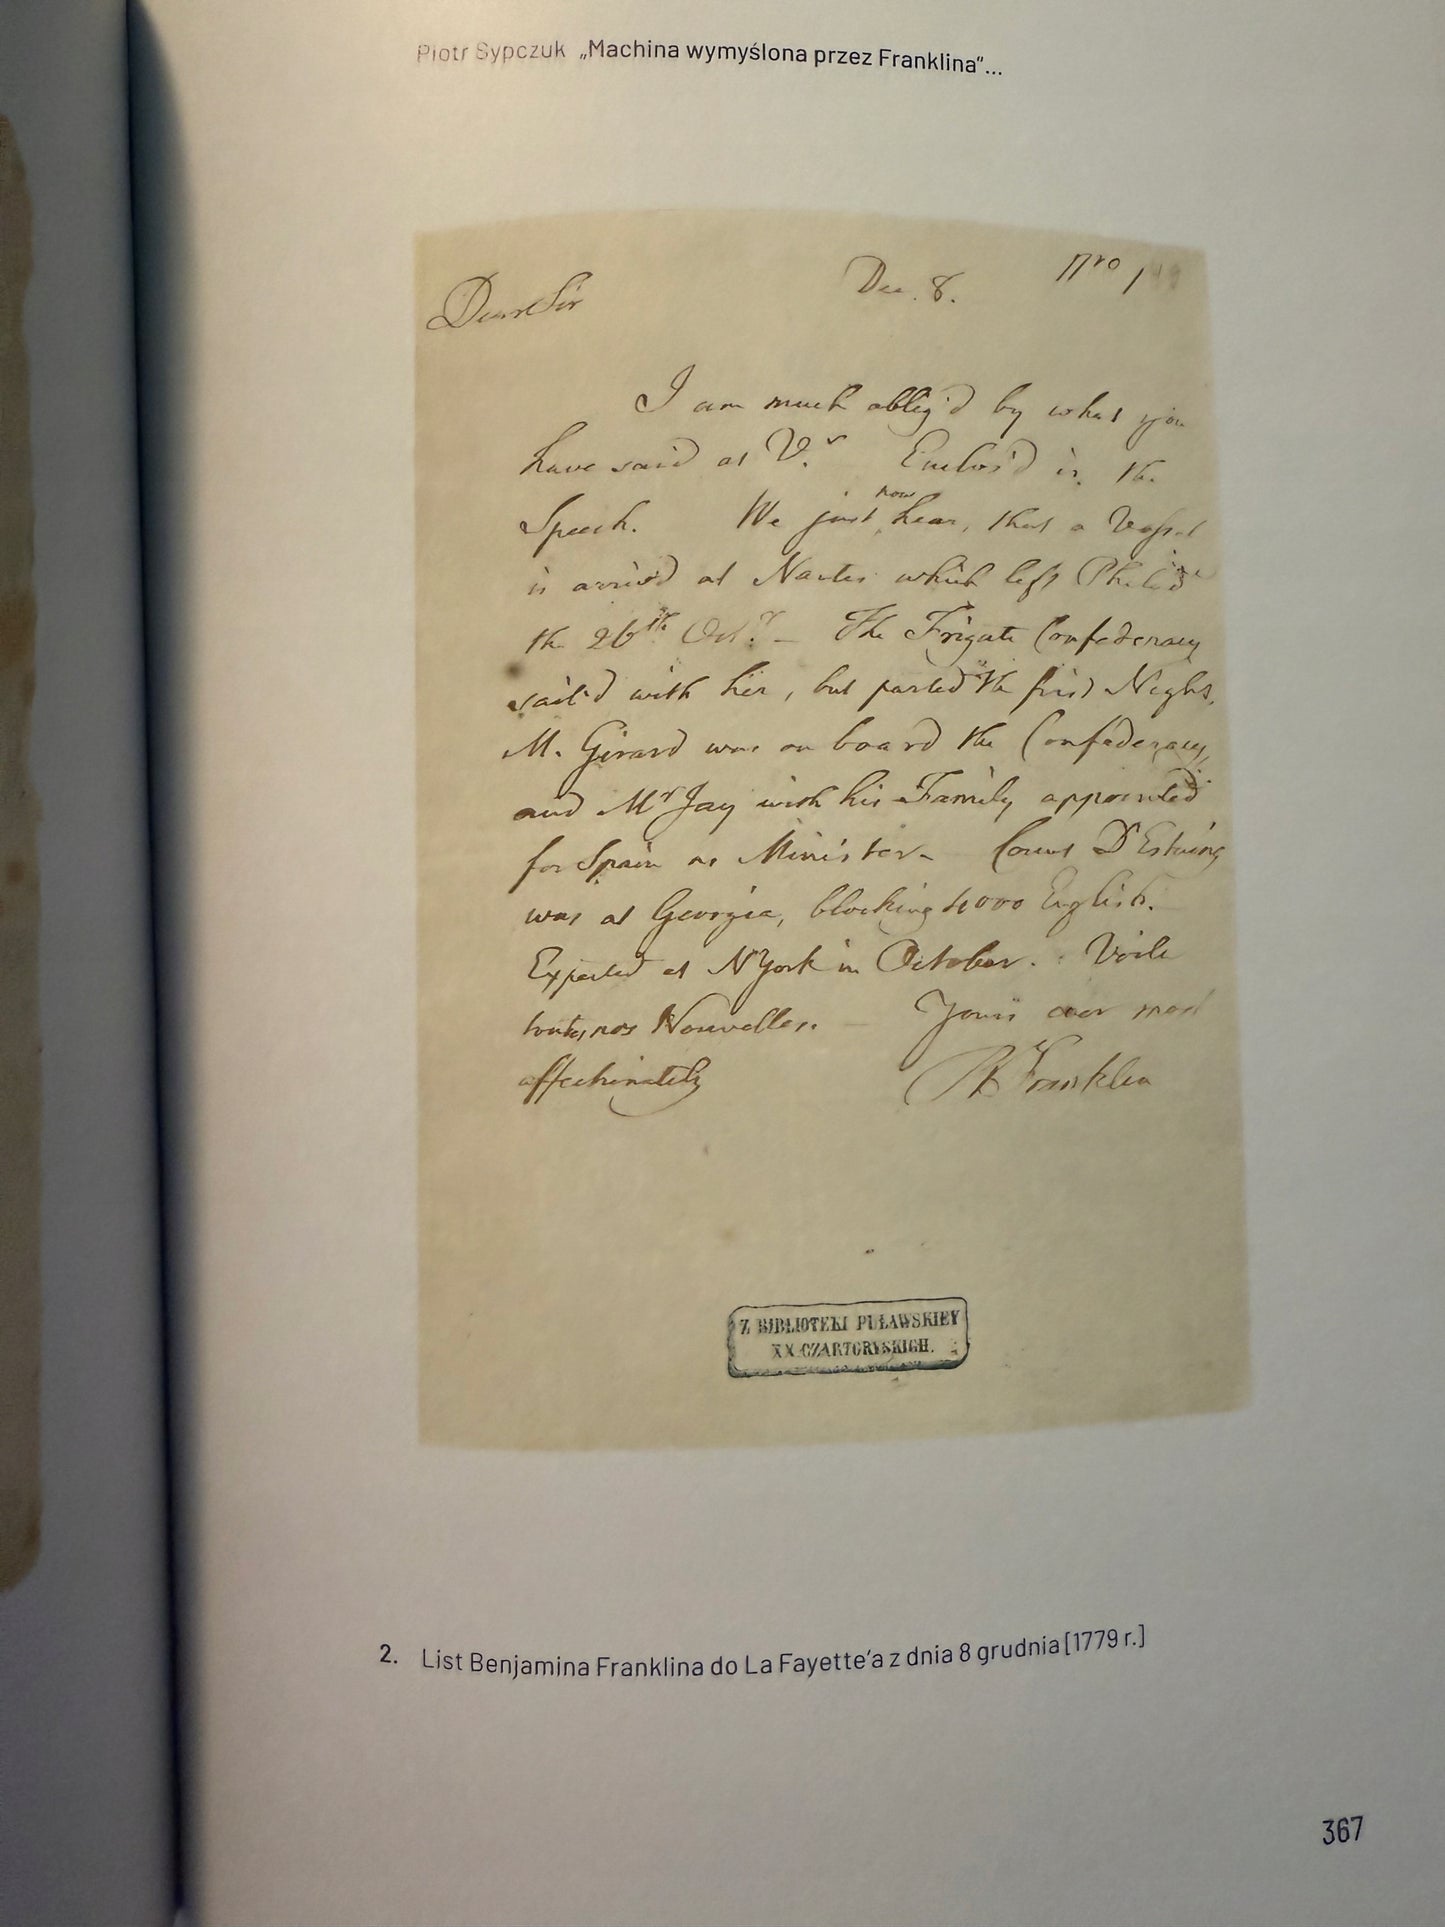 Piotr Sypczuk „Machina wymyślona przez Franklina"...
Dec. 8.
Dear Sir
I am much oblig'd by what you
have said at V.r Enclos'd is the
Speech. We just now hear, that a Vessel
is arriv'd at Nantes which left Philad
the 26th Oct.r — The Frigate Confederacy
sail'd with her, but parted the first Night.
M. Girard was on board the Confederacy,
and Mr Jay with his Family appointed
for Spain as Minister — Count D'Estaing
was at Georgia, blocking 4000 English.
Expected at N York in October. Voila
toutes nos Nouvelles. — Yours ever most
affectionately B Franklin
Z BIBLIOTEKI PUŁAWSKIEY
XX.CZARTORYSKICH.
2. List Benjamina Franklina do La Fayette'a z dnia 8 grudnia [1779 r.]
367